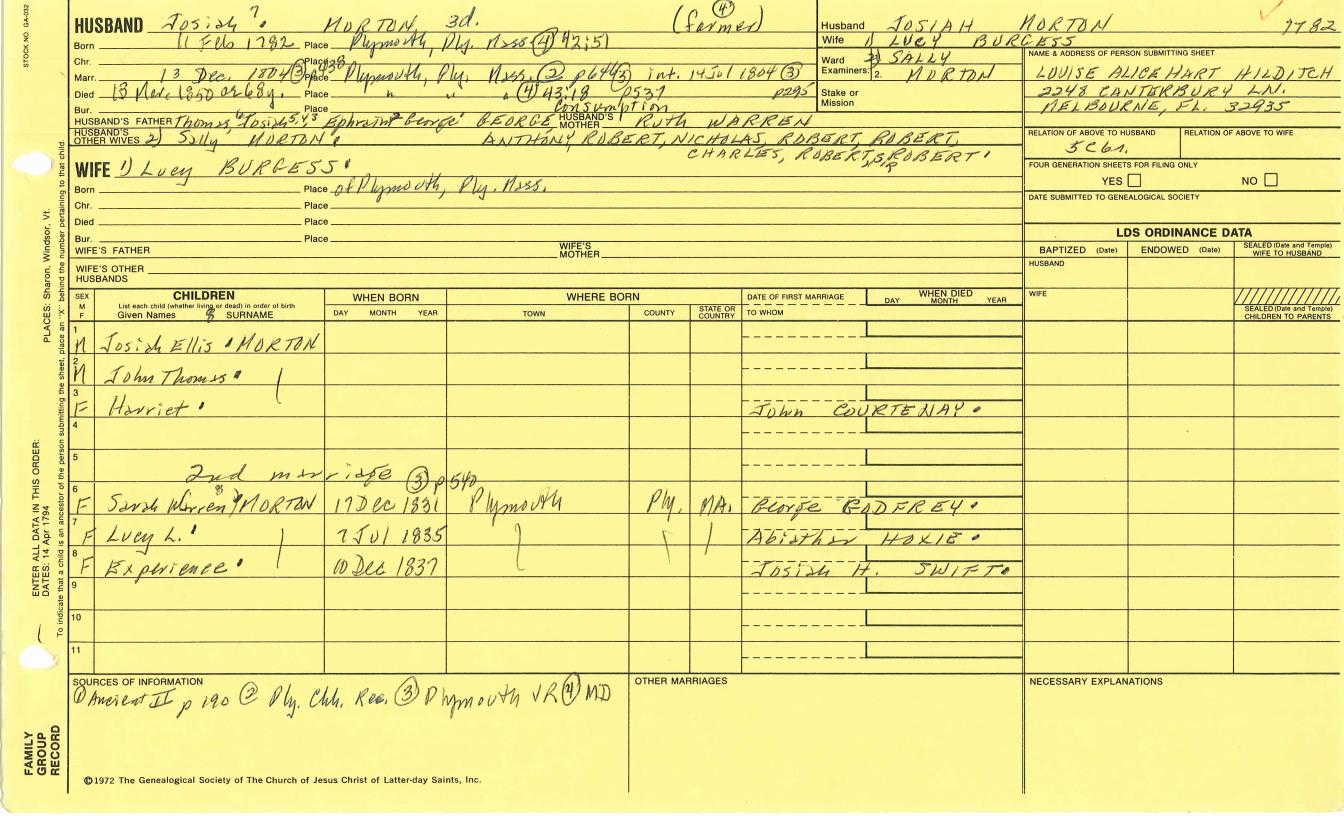 STOCK NO. GA-032
HUSBAND Josiah 7. MORTON 3d. (farmer) ④
Born 11 Feb 1782 Place Plymouth, Ply. Mass. ④ 42:51
Chr. Place
Marr. 13 Dec. 1804 ③ Place Plymouth, Ply. Mass. ② p644 ③ int. 14 Jul 1804 ③ p295
Died 13 Mar. 1850 ae 68y. " " " ④ 43:18 p537
Bur. Consumption
HUSBAND'S FATHER Thomas, Josiah, Ephraim, George GEORGE HUSBAND'S MOTHER Ruth WARREN
HUSBAND'S OTHER WIVES 2) Sally MORTON ANTHONY, ROBERT, NICHOLAS, ROBERT, ROBERT,
CHARLES, ROBERT, SR. ROBERT
WIFE 1) Lucy BURGESS
Born Place of Plymouth, Ply. Mass.
Chr. Place
Died Place
Bur. Place
WIFE'S FATHER WIFE'S MOTHER
WIFE'S OTHER HUSBANDS
Husband JOSIAH MORTON 1782
Wife 1) LUCY BURGESS
Ward 2) SALLY
Examiners: 2. MORTON
Stake or Mission
NAME & ADDRESS OF PERSON SUBMITTING SHEET
LOUISE ALICE HART HILDITCH
2248 CANTERBURY LN.
MELBOURNE, FL. 32935
RELATION OF ABOVE TO HUSBAND RELATION OF ABOVE TO WIFE
5C6r.
FOUR GENERATION SHEETS FOR FILING ONLY
YES NO
DATE SUBMITTED TO GENEALOGICAL SOCIETY
LDS ORDINANCE DATA
BAPTIZED (Date) ENDOWED (Date) SEALED (Date and Temple) WIFE TO HUSBAND
HUSBAND
WIFE
SEALED (Date and Temple) CHILDREN TO PARENTS
SEX M F CHILDREN WHEN BORN WHERE BORN DATE OF FIRST MARRIAGE WHEN DIED
List each child (whether living or dead) in order of birth
Given Names SURNAME DAY MONTH YEAR TOWN COUNTY STATE OR COUNTRY TO WHOM DAY MONTH YEAR
1 M Josiah Ellis MORTON
2 M John Thomas
3 F Harriet John COURTENAY
4
5
2nd marriage ③ p540
6 F Sarah Warren MORTON 17 Dec 1831 Plymouth Ply. MA. George GODFREY
7 F Lucy L. 7 Jul 1835 Abiather HOXIE
8 F Experience 10 Dec 1837 Josiah H. SWIFT
9
10
11
SOURCES OF INFORMATION
① Ancient II p 190 ② Ply. Chh. Rec. ③ Plymouth VR ④ MD
OTHER MARRIAGES
NECESSARY EXPLANATIONS
©1972 The Genealogical Society of The Church of Jesus Christ of Latter-day Saints, Inc.
FAMILY GROUP RECORD
ENTER ALL DATA IN THIS ORDER:
DATES: 14 Apr 1794
PLACES: Sharon, Windsor, Vt.
To indicate that a child is an ancestor of the person submitting the sheet, place an "X" behind the number pertaining to that child.